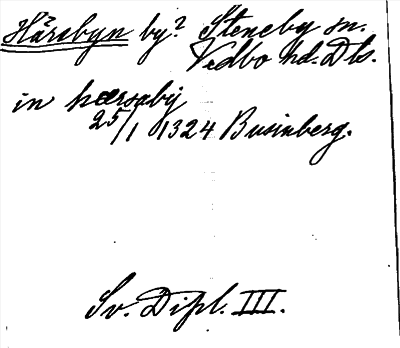 Härsbyn by? Steneby sn.
Vedbo hd. Dls.
in hærsaby
25/1 1324 Businberg.
Sv. Dipl. III.